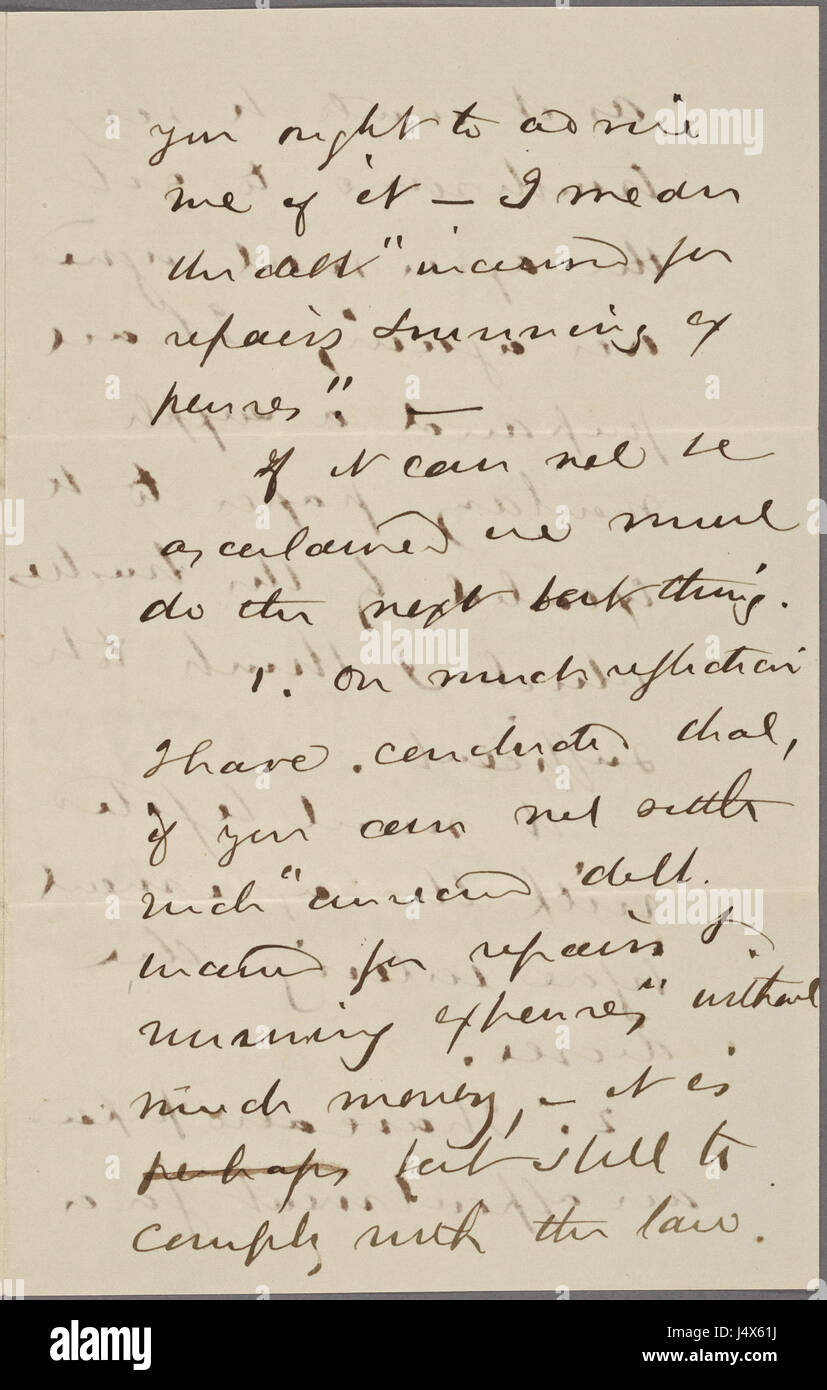 you ought to advise
me of it — I mean
the debt "incurred for
repairs & running ex
penses". —
If it can not be
ascertained we must
do the next best thing.
1. On much reflection
I have concluded that,
if you can not settle
such "unsecured debt.
incurred for repairs &
running expenses" without
much money, – it is
perhaps best still to
comply with the law.
alamy stock photo
alamy
J4X61J
www.alamy.com